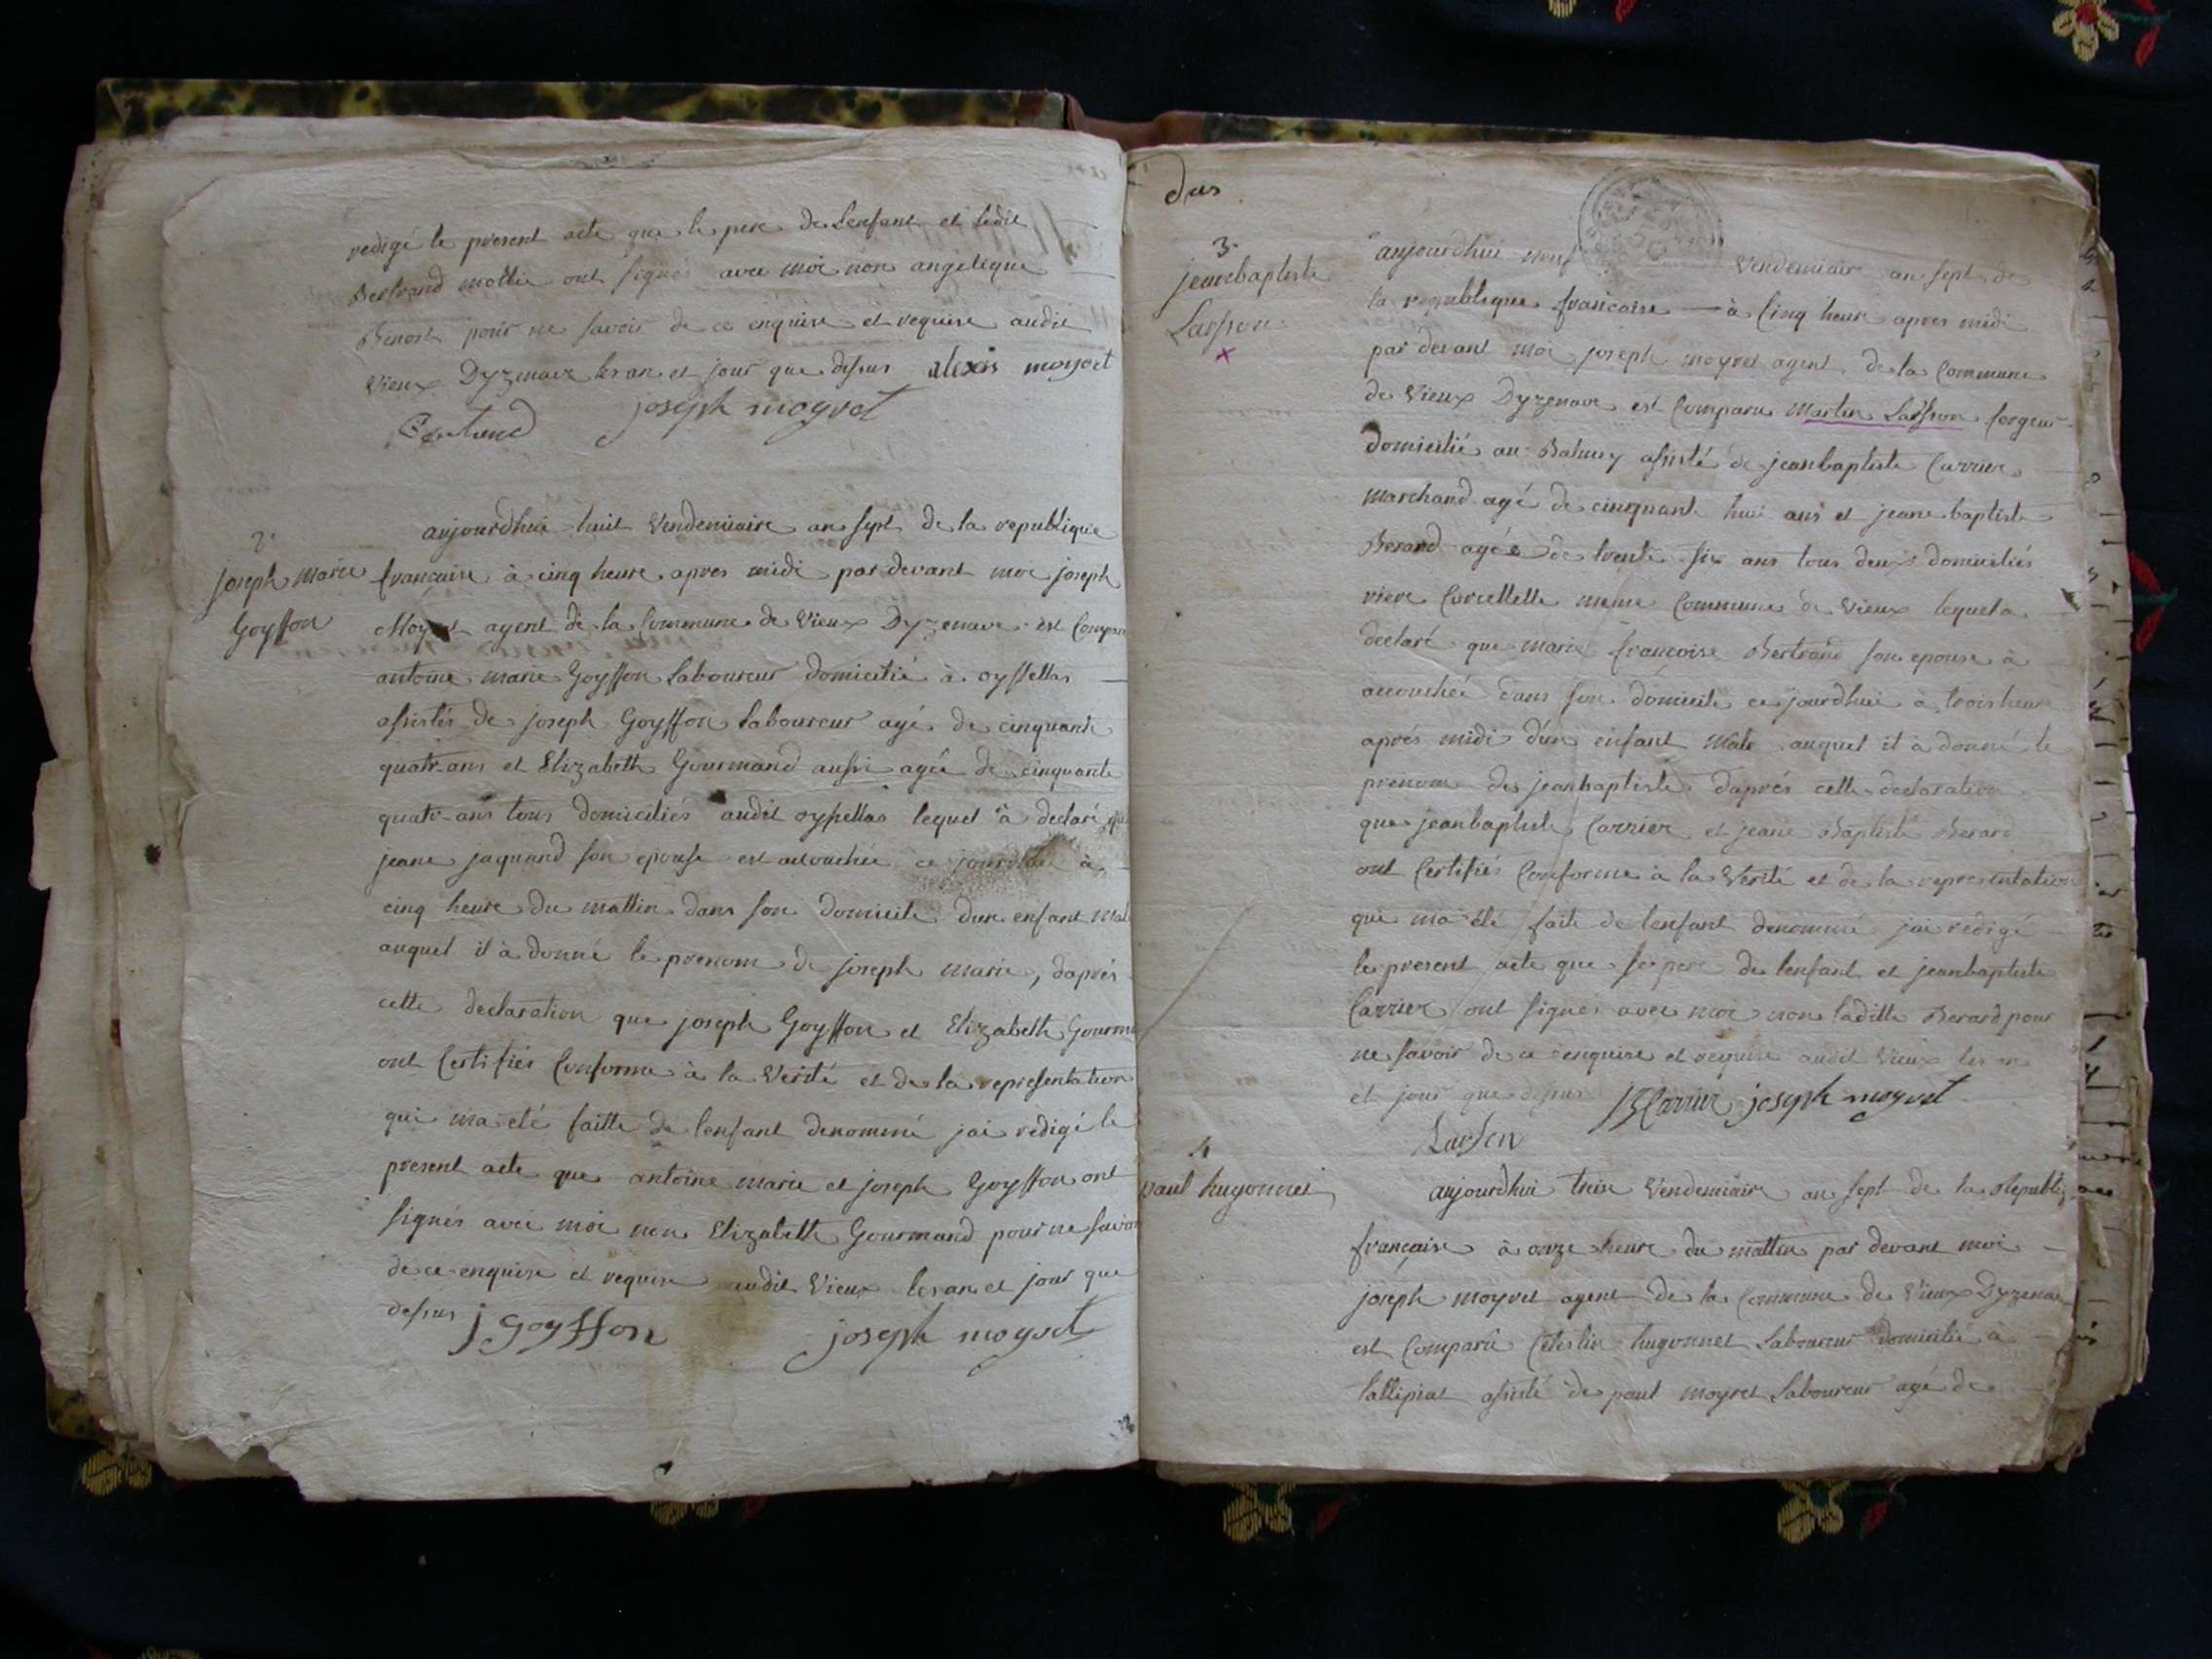 redigé le present acte que le pere de Lenfant et ledit
Bertrand mollie ont signés avec moi non angelique
Benost pour ne savoir de ce enquise et requise audit
Vieux Dyzenave les an et jour que dessus alexis moyret
Bertrand joseph moyret
2.
joseph marie
Goyffon
aujourdhui huit Vendemiaire an sept de la republique
francaise à cinq heure apres midi par devant moi joseph
Moyret agent de la Commune de Vieux Dyzenave est Compar
antoine marie Goyffon Laboureur domicilié à oyssellas
assistés de joseph Goyffon Laboureur agé de cinquante
quatr-ans et Elizabeth Gourmand aussi agée de cinquante
quatr-ans tous domiciliés audit oyssellas lequel à declaré que
jeane jaquand son epouse est accouchée ce jourdhui à
cinq heure du mattin dans son domicile dun enfant mal
auquel il à donné le prenom de joseph marie, daprés
cette declaration que joseph Goyffon et Elizabeth Gourm
ont Certifiés Conforme à la Verité et de la representation
qui ma eté faitte de lenfant denommé jai redigé le
present acte que antoine marie et joseph Goyffon ont
signés avec moi non Elizabeth Gourmand pour ne savoir
de ce enquise et requise audit Vieux les an et jour que
dessus j Goyffon joseph moyret
dus
3.
jeanbaptiste
Lasson
x
aujourdhui neuf Vendemiaire an sept de
la republique francaise — à Cinq heure apres midi
par devant moi joseph moyret agent de la Commune
de Vieux Dyzenave est Comparu Martin Lasson forgeur
domicilié au Balmey assisté de jeanbaptiste Carrier
marchand agé de cinquante huit ans et jeane baptiste
Berard agée de trente six ans tous deux domiciliés
riere Corcellette meme Commune de Vieux lequel a
declaré que marie francoise Bertrand son epouse à
accouchée dans son domicile ce jourdhui à trois heur
aprés midi d'un enfant Male auquel il à donné le
prenom des jeanbaptiste daprés cette declaration
que jeanbaptiste Carrier et jeane Baptiste Berard
ont Certifiés Conforme à la Verité et de la representation
qui ma été faite de lenfant denommé jai redigé
le present acte que le pere de lenfant et jeanbaptiste
Carrier ont signés avec moi non laditte Berard pour
ne savoir de ce enquise et requise audit Vieux les an
et jour que dessus JBCarrier joseph moyret
Lasson
4
paul hugonnet
aujourdhui treize Vendemiaire an sept de la Republiq
française à onze heure du mattin par devant moi
joseph moyret agent de la Commune de Vieux Dyzenave
est Comparu Célestin hugonnet Laboureur domicilié à
assisté de paul moyret Laboureur agé de